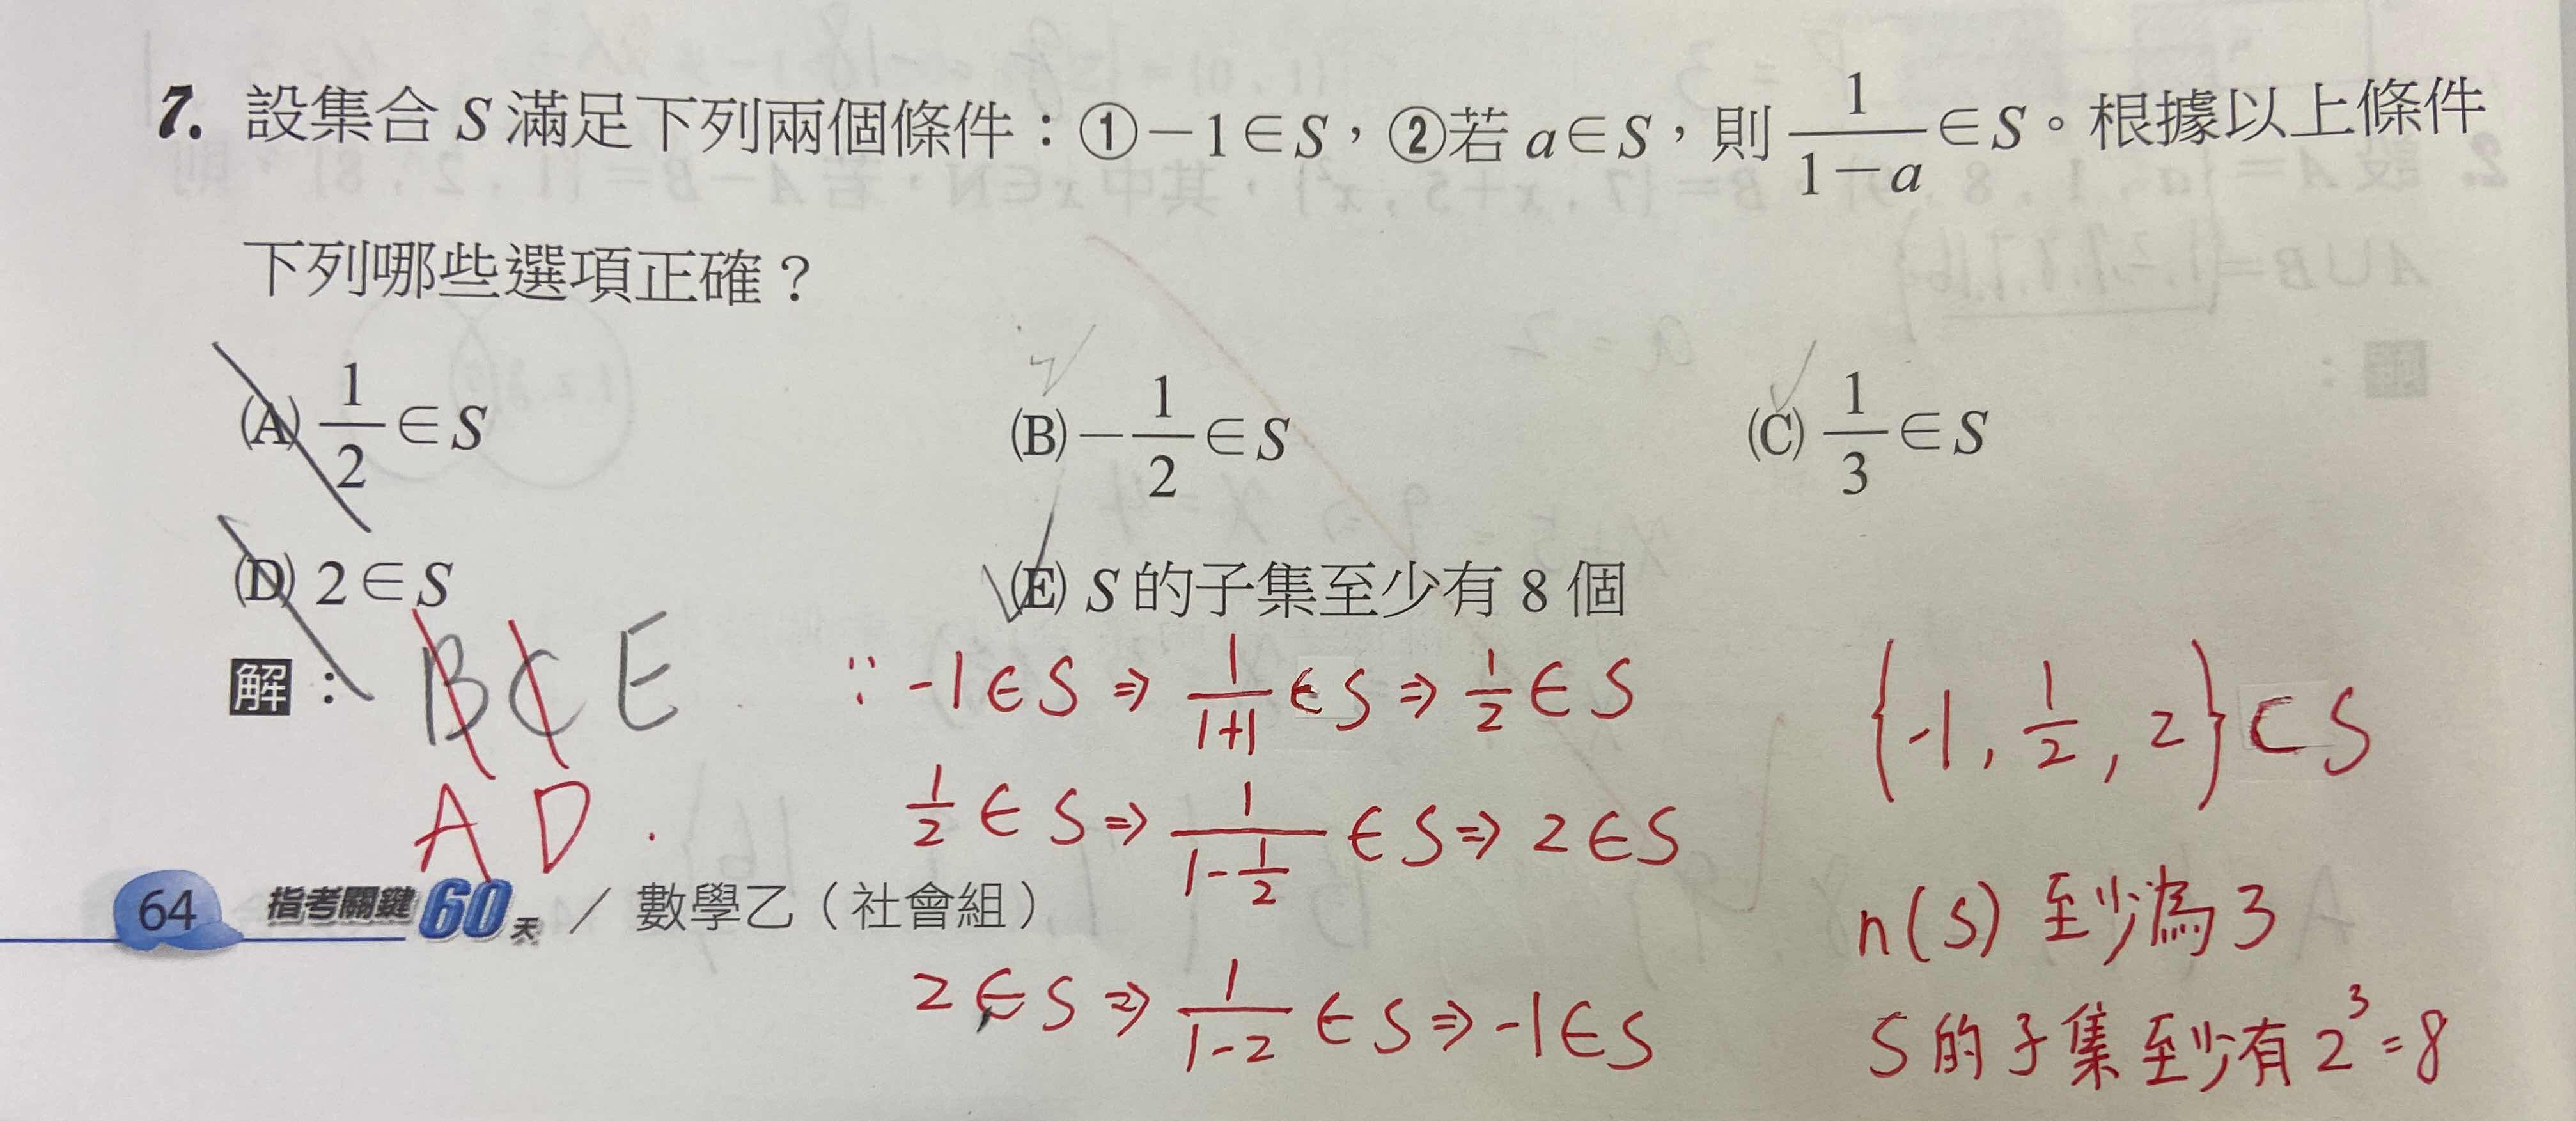 7. 設集合 S 滿足下列兩個條件：①－1∈S，②若 a∈S，則 1/(1－a) ∈S。根據以上條件
下列哪些選項正確？
(A) 1/2 ∈S (B) －1/2 ∈S (C) 1/3 ∈S
(D) 2∈S (E) S 的子集至少有 8 個
解： B C E
A D .
∵ -1∈S ⇒ 1/(1+1) ∈S ⇒ 1/2 ∈ S
1/2 ∈ S ⇒ 1/(1-1/2) ∈ S ⇒ 2∈S
2∈S ⇒ 1/(1-2) ∈ S ⇒ -1∈S
{-1, 1/2, 2}⊂S
n(S) 至少為 3
S 的子集至少有 2³=8
64 指考關鍵60天／數學乙（社會組）